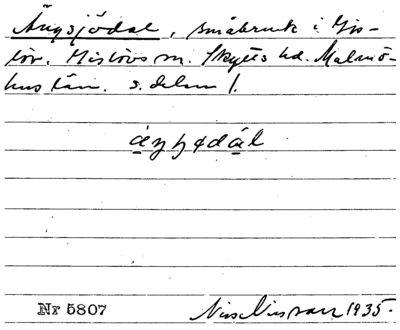 Ängsjödal, småbruk i His-
löv. Hislövs sn. Skytts hd. Malmö-
hus län. s. delen 1.
äŋ ɧødɑ́l
Nr 5807 Nils Nilsson 1935.